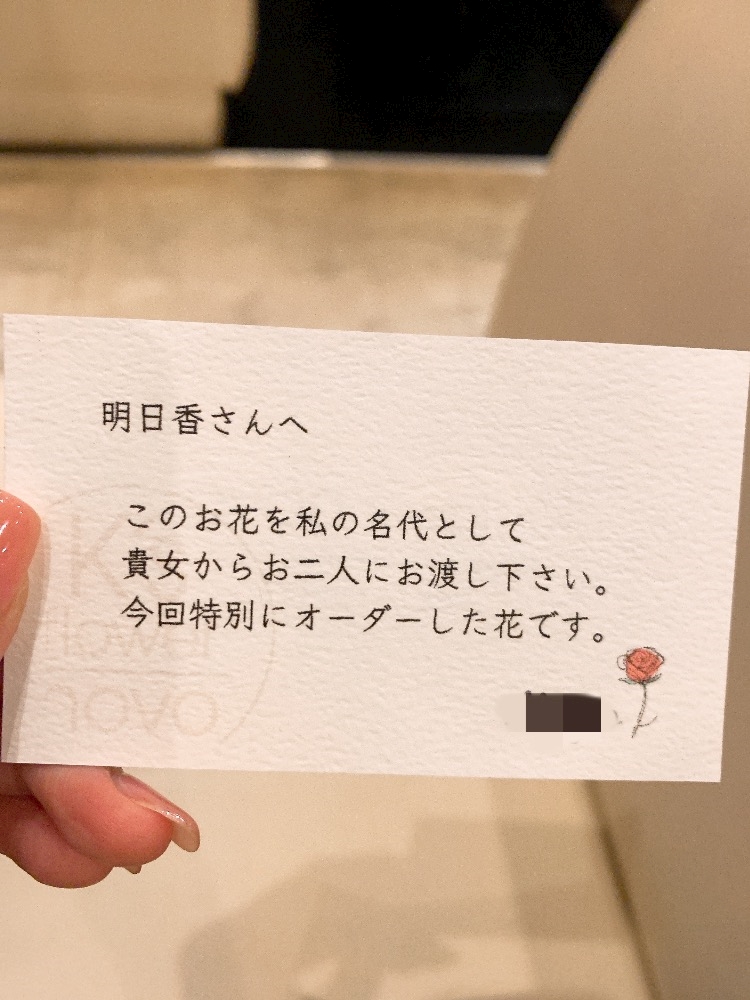 明日香さんへ
このお花を私の名代として
貴女からお二人にお渡し下さい。
今回特別にオーダーした花です。